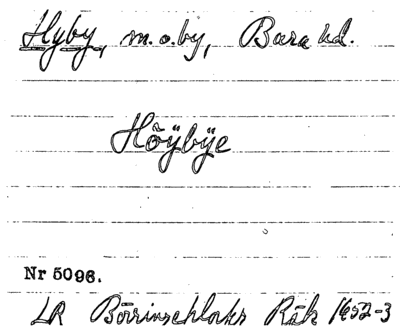 Hyby, m.o.by, Bara hd.
Höÿbÿe
Nr 5096.
LR Börrinschloks Räk 1652-3